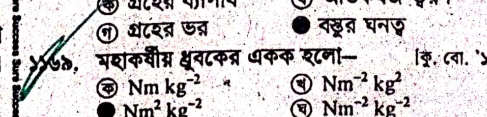 গ্রহের ভর ● বস্তুর ঘনত্ব
১১৬৯. মহাকর্ষীয় ধ্রুবকের একক হলো— [কু. বো.
ক Nm kg⁻² খ Nm⁻² kg²
● Nm² kg⁻² ঘ Nm⁻² kg⁻²